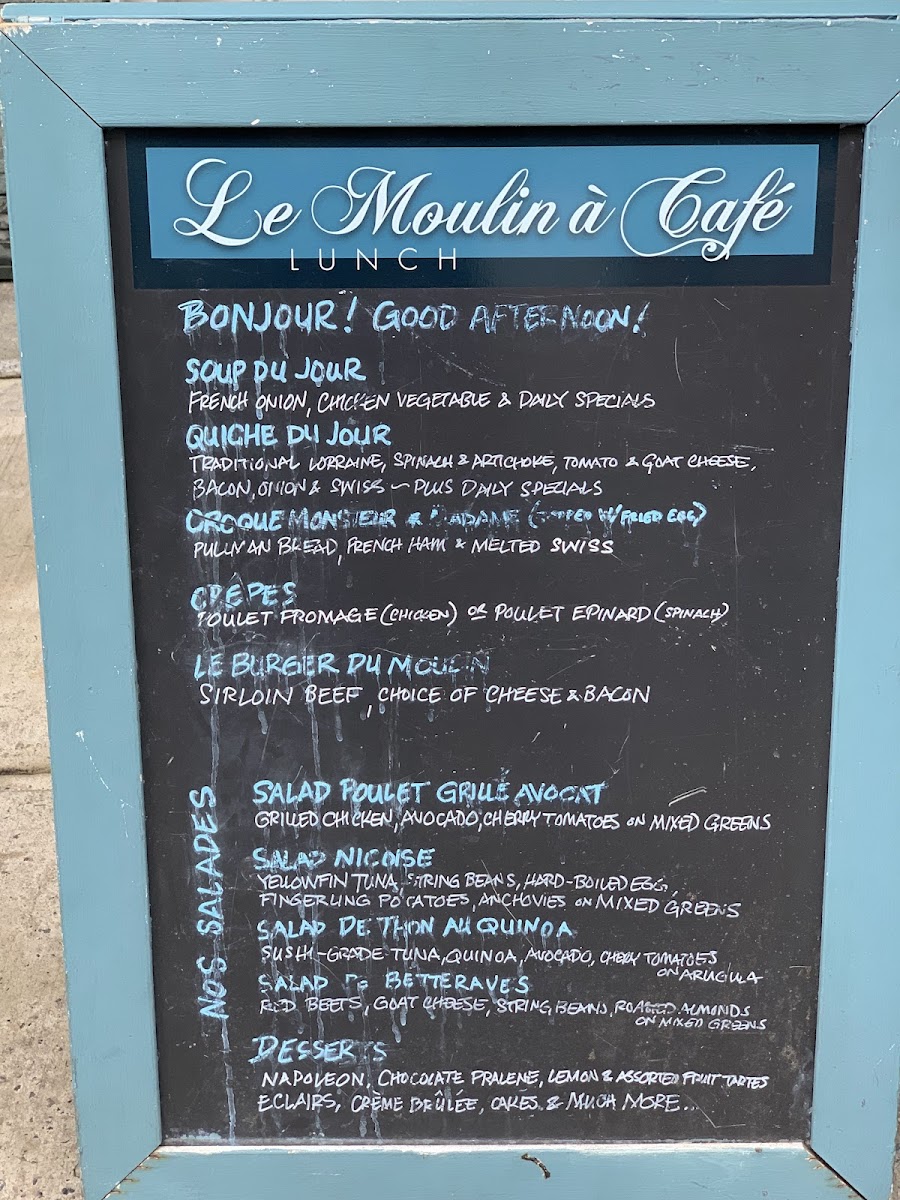 Le Moulin à Café
LUNCH
BONJOUR! GOOD AFTERNOON!
SOUP DU JOUR
FRENCH ONION, CHICKEN VEGETABLE & DAILY SPECIALS
QUICHE DU JOUR
TRADITIONAL LORRAINE, SPINACH & ARTICHOKE, TOMATO & GOAT CHEESE,
BACON, ONION & SWISS ~ PLUS DAILY SPECIALS
CROQUE MONSIEUR & MADAME (TOPPED W/ FRIED EGG)
PULLMAN BREAD, FRENCH HAM & MELTED SWISS
CREPES
POULET FROMAGE (CHICKEN) OR POULET EPINARD (SPINACH)
LE BURGER DU MOULIN
SIRLOIN BEEF, CHOICE OF CHEESE & BACON
NOS SALADES
SALAD POULET GRILLÉ AVOCAT
GRILLED CHICKEN, AVOCADO, CHERRY TOMATOES ON MIXED GREENS
SALAD NICOISE
YELLOWFIN TUNA, STRING BEANS, HARD-BOILED EGG,
FINGERLING POTATOES, ANCHOVIES ON MIXED GREENS
SALAD DE THON AU QUINOA
SUSHI-GRADE TUNA, QUINOA, AVOCADO, CHERRY TOMATOES
ON ARUGULA
SALAD DE BETTERAVES
RED BEETS, GOAT CHEESE, STRING BEANS, ROASTED ALMONDS
ON MIXED GREENS
DESSERTS
NAPOLEON, CHOCOLATE PRALENE, LEMON & ASSORTED FRUIT TARTES
ECLAIRS, CRÈME BRÛLÉE, CAKES & MUCH MORE...